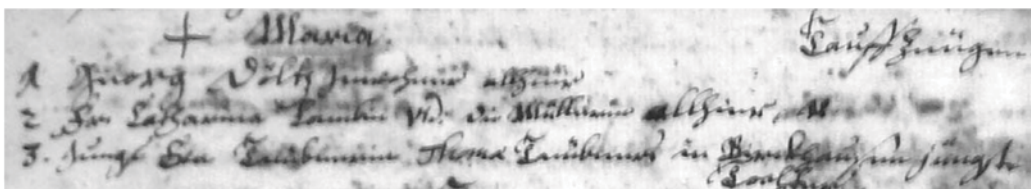 + Maria. Tauffzeugen
1 Georg Döltz Inwohner allhier
2 Fr. Catharina die Müllerin allhier
3. Jungf. Eva Teubnerin Thoma Teübners in jüngste
Tochter